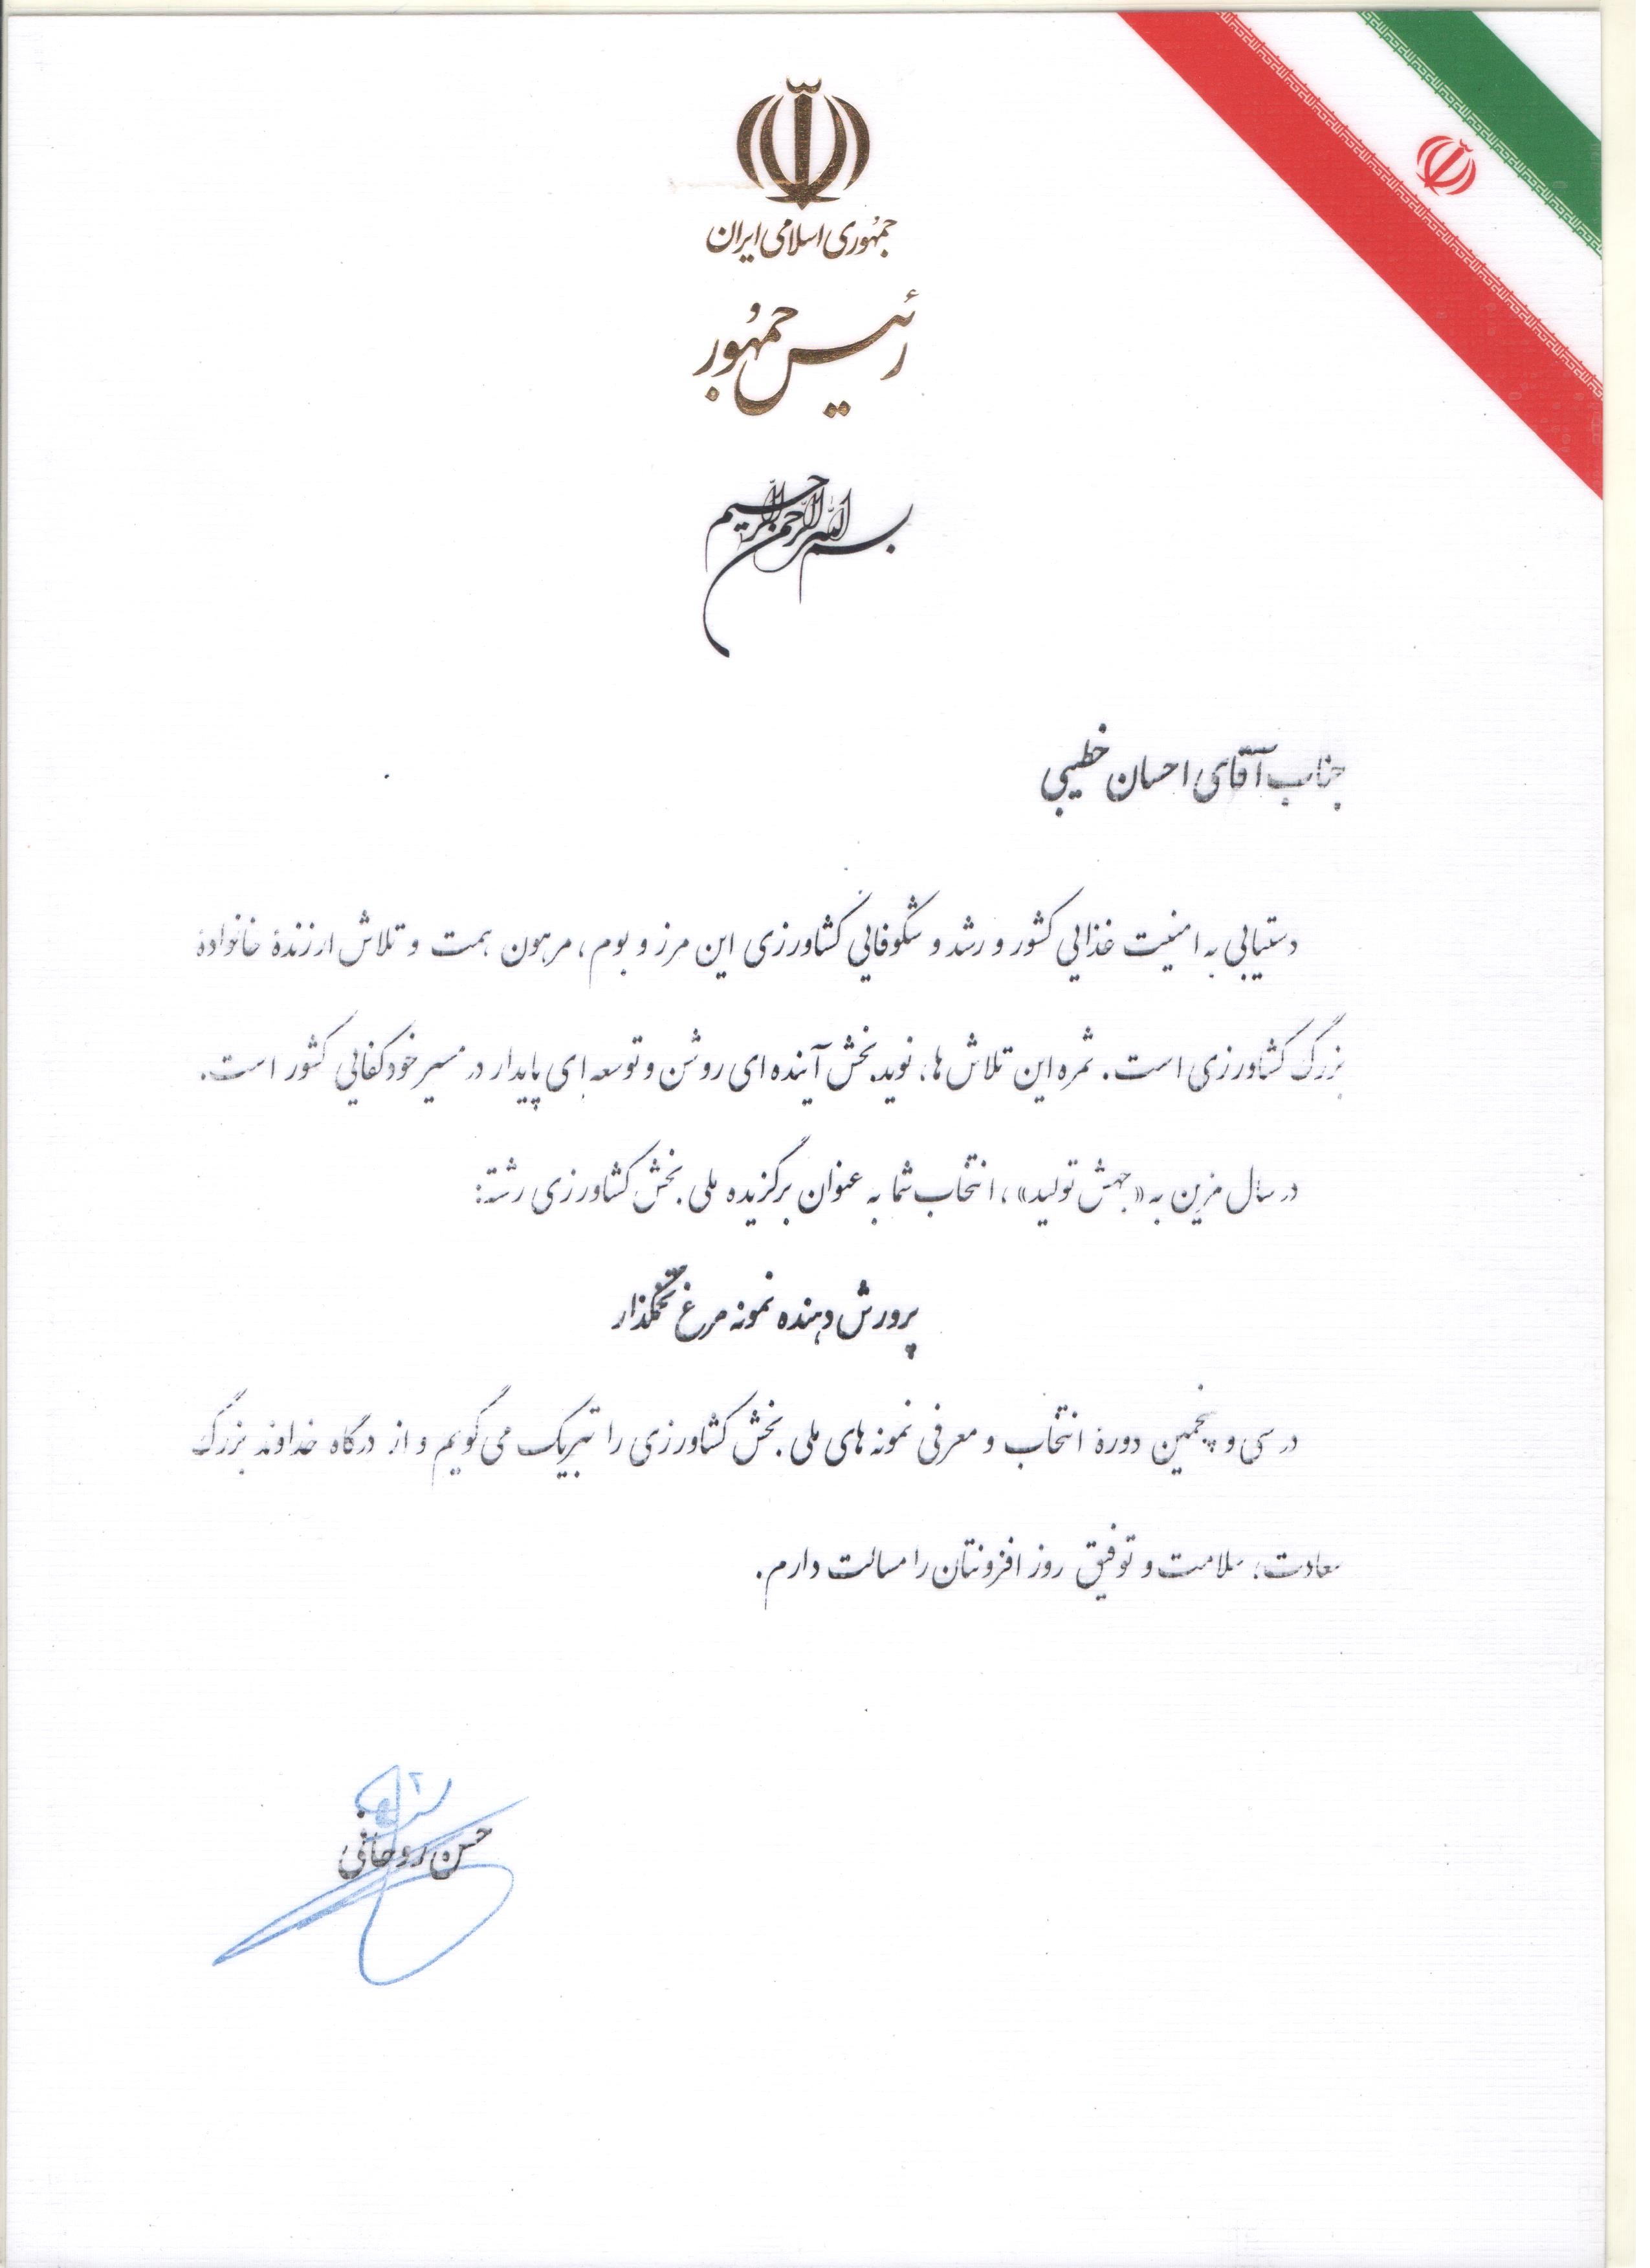 جمهوری اسلامی ایران
رئیس جمهور
بسم الله الرحمن الرحیم
جناب آقای احسان خطیبی
دستیابی به امنیت غذایی کشور و رشد و شکوفایی کشاورزی این مرز و بوم، مرهون همت و تلاش ارزندهٔ خانوادهٔ
بزرگ کشاورزی است. ثمره این تلاش ها، نویدبخش آینده ای روشن و توسعه ای پایدار در مسیر خودکفایی کشور است.
در سال مزین به «جهش تولید»، انتخاب شما به عنوان برگزیده ملی بخش کشاورزی رشته:
پرورش دهنده نمونه مرغ تخمگذار
در سی و پنجمین دورهٔ انتخاب و معرفی نمونه های ملی بخش کشاورزی را تبریک می گویم و از درگاه خداوند بزرگ
سعادت، سلامت و توفیق روز افزونتان را مسالت دارم.
حسن روحانی